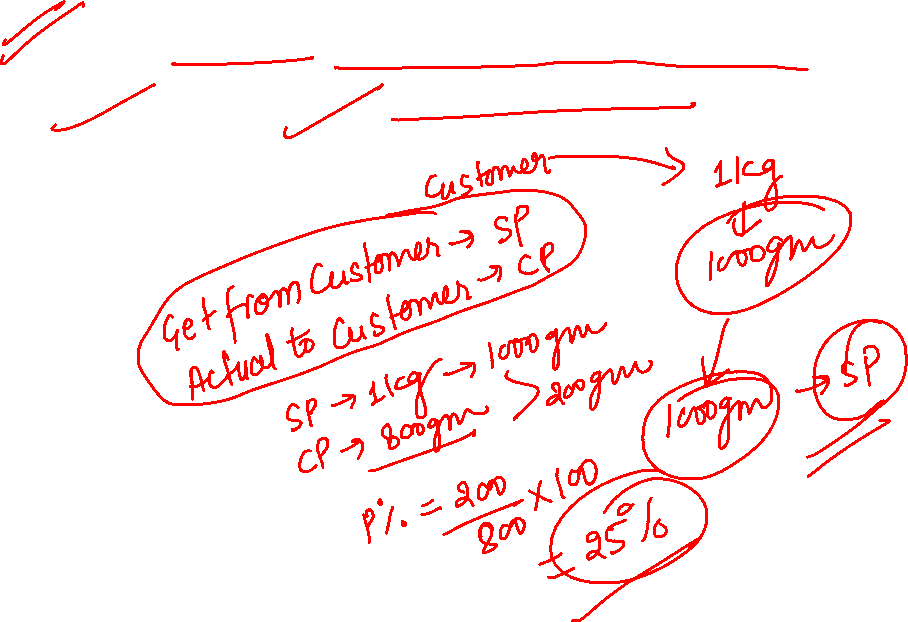 Customer → 1kg
↓
1000gm
Get from Customer → SP
Actual to Customer → CP
SP → 1kg → 1000gm
CP → 800gm > 200gm
1000gm → SP
P% = 200/800 × 100
= 25%